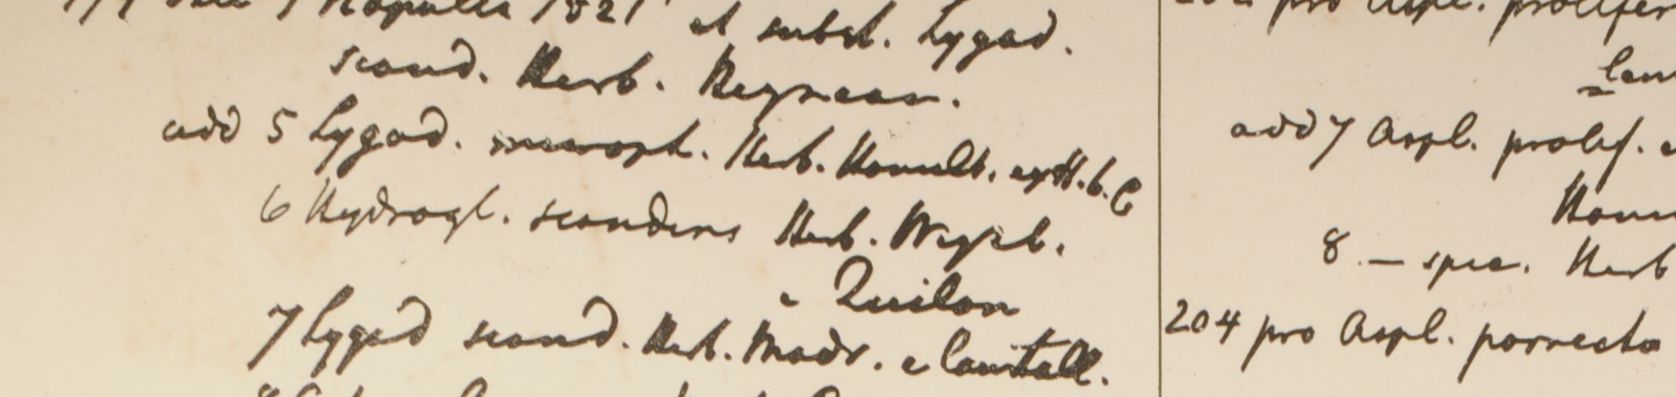 Napalia 1821 et subst. Lygod.
scand. Herb. Heynean.
add 5 Lygod. microph. Herb. Hamilt. ex H. b. C
6 Hydrogl. scandens Herb. Wight.
e Quilon
7 Lygod scand. Herb. Madr. e Courtall.
pro Aspl. prolifer
add 7 Aspl. prolif. e
Ham
8. — spec. Herb
204 pro Aspl. porrecto